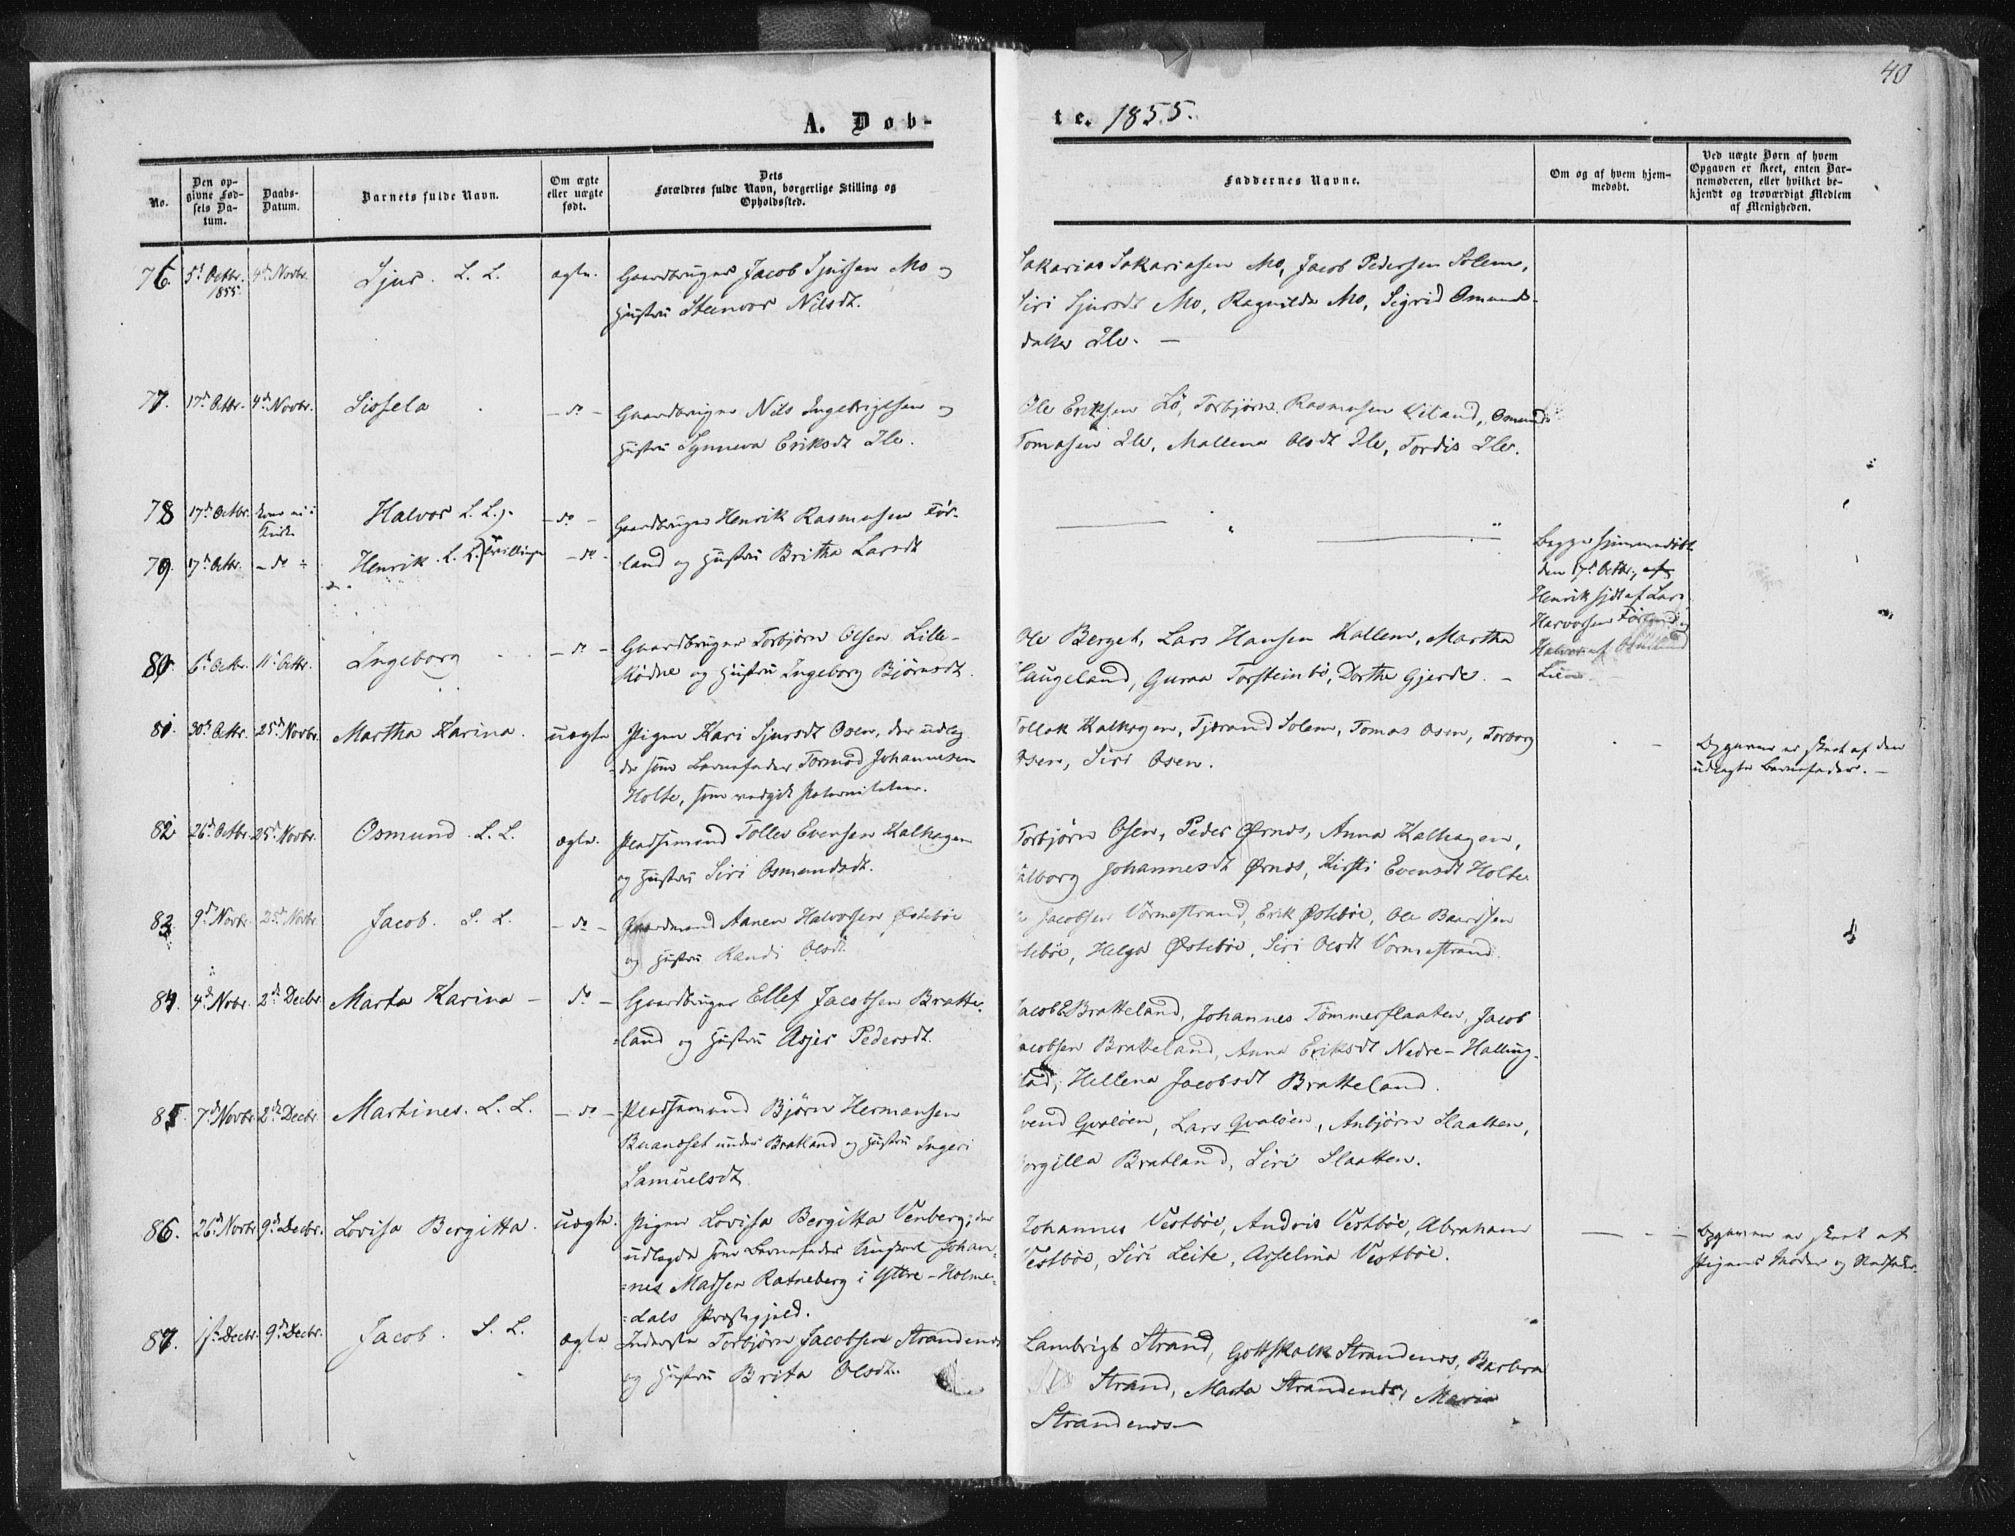 40
A. Døb-
te. 1855.
No.
Den op-
givne Fød-
sels Da-
tum.
Daabs-
Datum.
Barnets fulde Navn.
Om ægte
eller uægte
født.
Dets
Forældres fulde Navn, borgerlige Stilling og
Opholdssted.
Faddernes Navne.
Om og af hvem hjem-
medøbt.
Ved uægte Børn af hvem
Opgaven er skeet, enten Bar-
nemoderen, eller hvilket be-
kjendt og troværdigt Medlem
af Menigheden.
76. 5d Octbr. 1855. 4de Novbr. Sjur. L. L. ægte. Gaardbruger Jacob Sjursen Mo og
Hustru Steenvor Nilsdt.
Sakarias Sakariasen Mo, Jacob Pedersen Solem,
Siri Sjursdt Mo, Ragnilda Mo, Sigrid Omunds-
datter Ile. —
77. 17d Octbr. 4de Novbr. Sissela - do - Gaardbruger Nils Ingebrigtsen og
Hustru Synneva Eriksdt Ile.
Ole Eriksen Lö, Torbjörn Rasmusen Viland, Omund
Tomasen Ile, Mallena Olsdt Ile, Tordis Ile.
78 17d Octbr. Halvor L. L. - do - Gaardbruger Henrik Rasmusen Før-
79. 17d Octbr. - do - Henrik. L. L. Tvillinger - do - land og Hustru Britha Larsdt
Begge hjemmedøbt
den 17d Octbr, af
Henrik hjdt af Lars
Harvorsen Förland og
Halvor af Osmund
Lien
80. 6d Octbr. 11d Octbr. Ingeborg - do - Gaardbruger Torbjörn Olsen Lille-
Mødne og Hustru Ingeborg Björnsdt.
Ole Berget, Lars Hansen Hallem, Martha
Haugeland, Guraa Torsteinbö, Dorthe Gjerde. -
81. 30d Octbr. 25d Novbr. Martha Karina. uægte Pigen Kari Sjursdt Osen, der udlag-
de som Barnefader Tormod Johannesen
Holte, som vedgik Paterniteten.
Tollak Kalhagen, Tjerand Solem, Tomas Osen, Torborg
Osen, Siri Osen.
Opgaven er skeet af den
udlagte Barnefader. -
82 26d Octbr. 25d Novbr. Osmund. L. L. ægte. Pladsmand Tollev Evensen Kalhagen
og Hustru Siri Osmundsdt.
Torbjörn Osen, Peder Ørnes, Anna Kalhagen,
Valborg Johannesdt Ørnes, Kirsti Evensdt Holte
83. 9d Novbr. 25d Novbr. Jacob. L. L. - do - Gaardmand Aanen Halvorsen Østebøe
og Hustru Randi Olsdt.
Jacobsen Vörmestrand, Erik Østebøe, Ole Baardsen
Østebøe, Helga Østebøe, Siri Olsdt Vormestrand.
84. 4d Novbr. 2d Decbr. Marta Karina - do - Gaardbruger Ellef Jacobsen Bratte-
land og Hustru Asjer Pedersdt.
Jacob E Bratteland, Johannes Tömmerflaaten, Jacob
Jacobsen Bratteland, Anna Eriksdt Nedre-Halling-
stad, Hellena Jacobsdt Bratteland.
85. 7d Novbr. 2d Decbr. Martines. L. L. - do - Pladsmand Björn Hermansen
Buaneset under Bratland og Hustru Ingeri
Samuelsdt
Svend Qvalöen, Lars Qvalöen, Anbjörn Slaatten,
Torgilla Bratland, Siri Slaatten.
86. 26d Novbr. 9d Decbr. Lovisa Bergitta. uægte. Pigen Lovisa Bergitta Venberg, der
udlagde som Barnefader Ungkarl Johan-
nes Madsen Ratneberg i Yttre-Holme-
dals Præstegjeld.
Johannes Vestbøe, Andris Vestbøe, Abraham
Vestbøe, Siri Leite, Asselina Vestbøe.
Opgaven er skeet af
Pigens Moder og Stedfader.
87. 1ste Decbr. 9d Decbr. Jacob. L. L. ægte Inderste Torbjörn Jacobsen Strandenes
og Hustru Brita Olsdt.
Lambrigt Strand, Gottskalk Strandenes, Barbra
Strand, Marta Strandenes, Maria
Strandenes